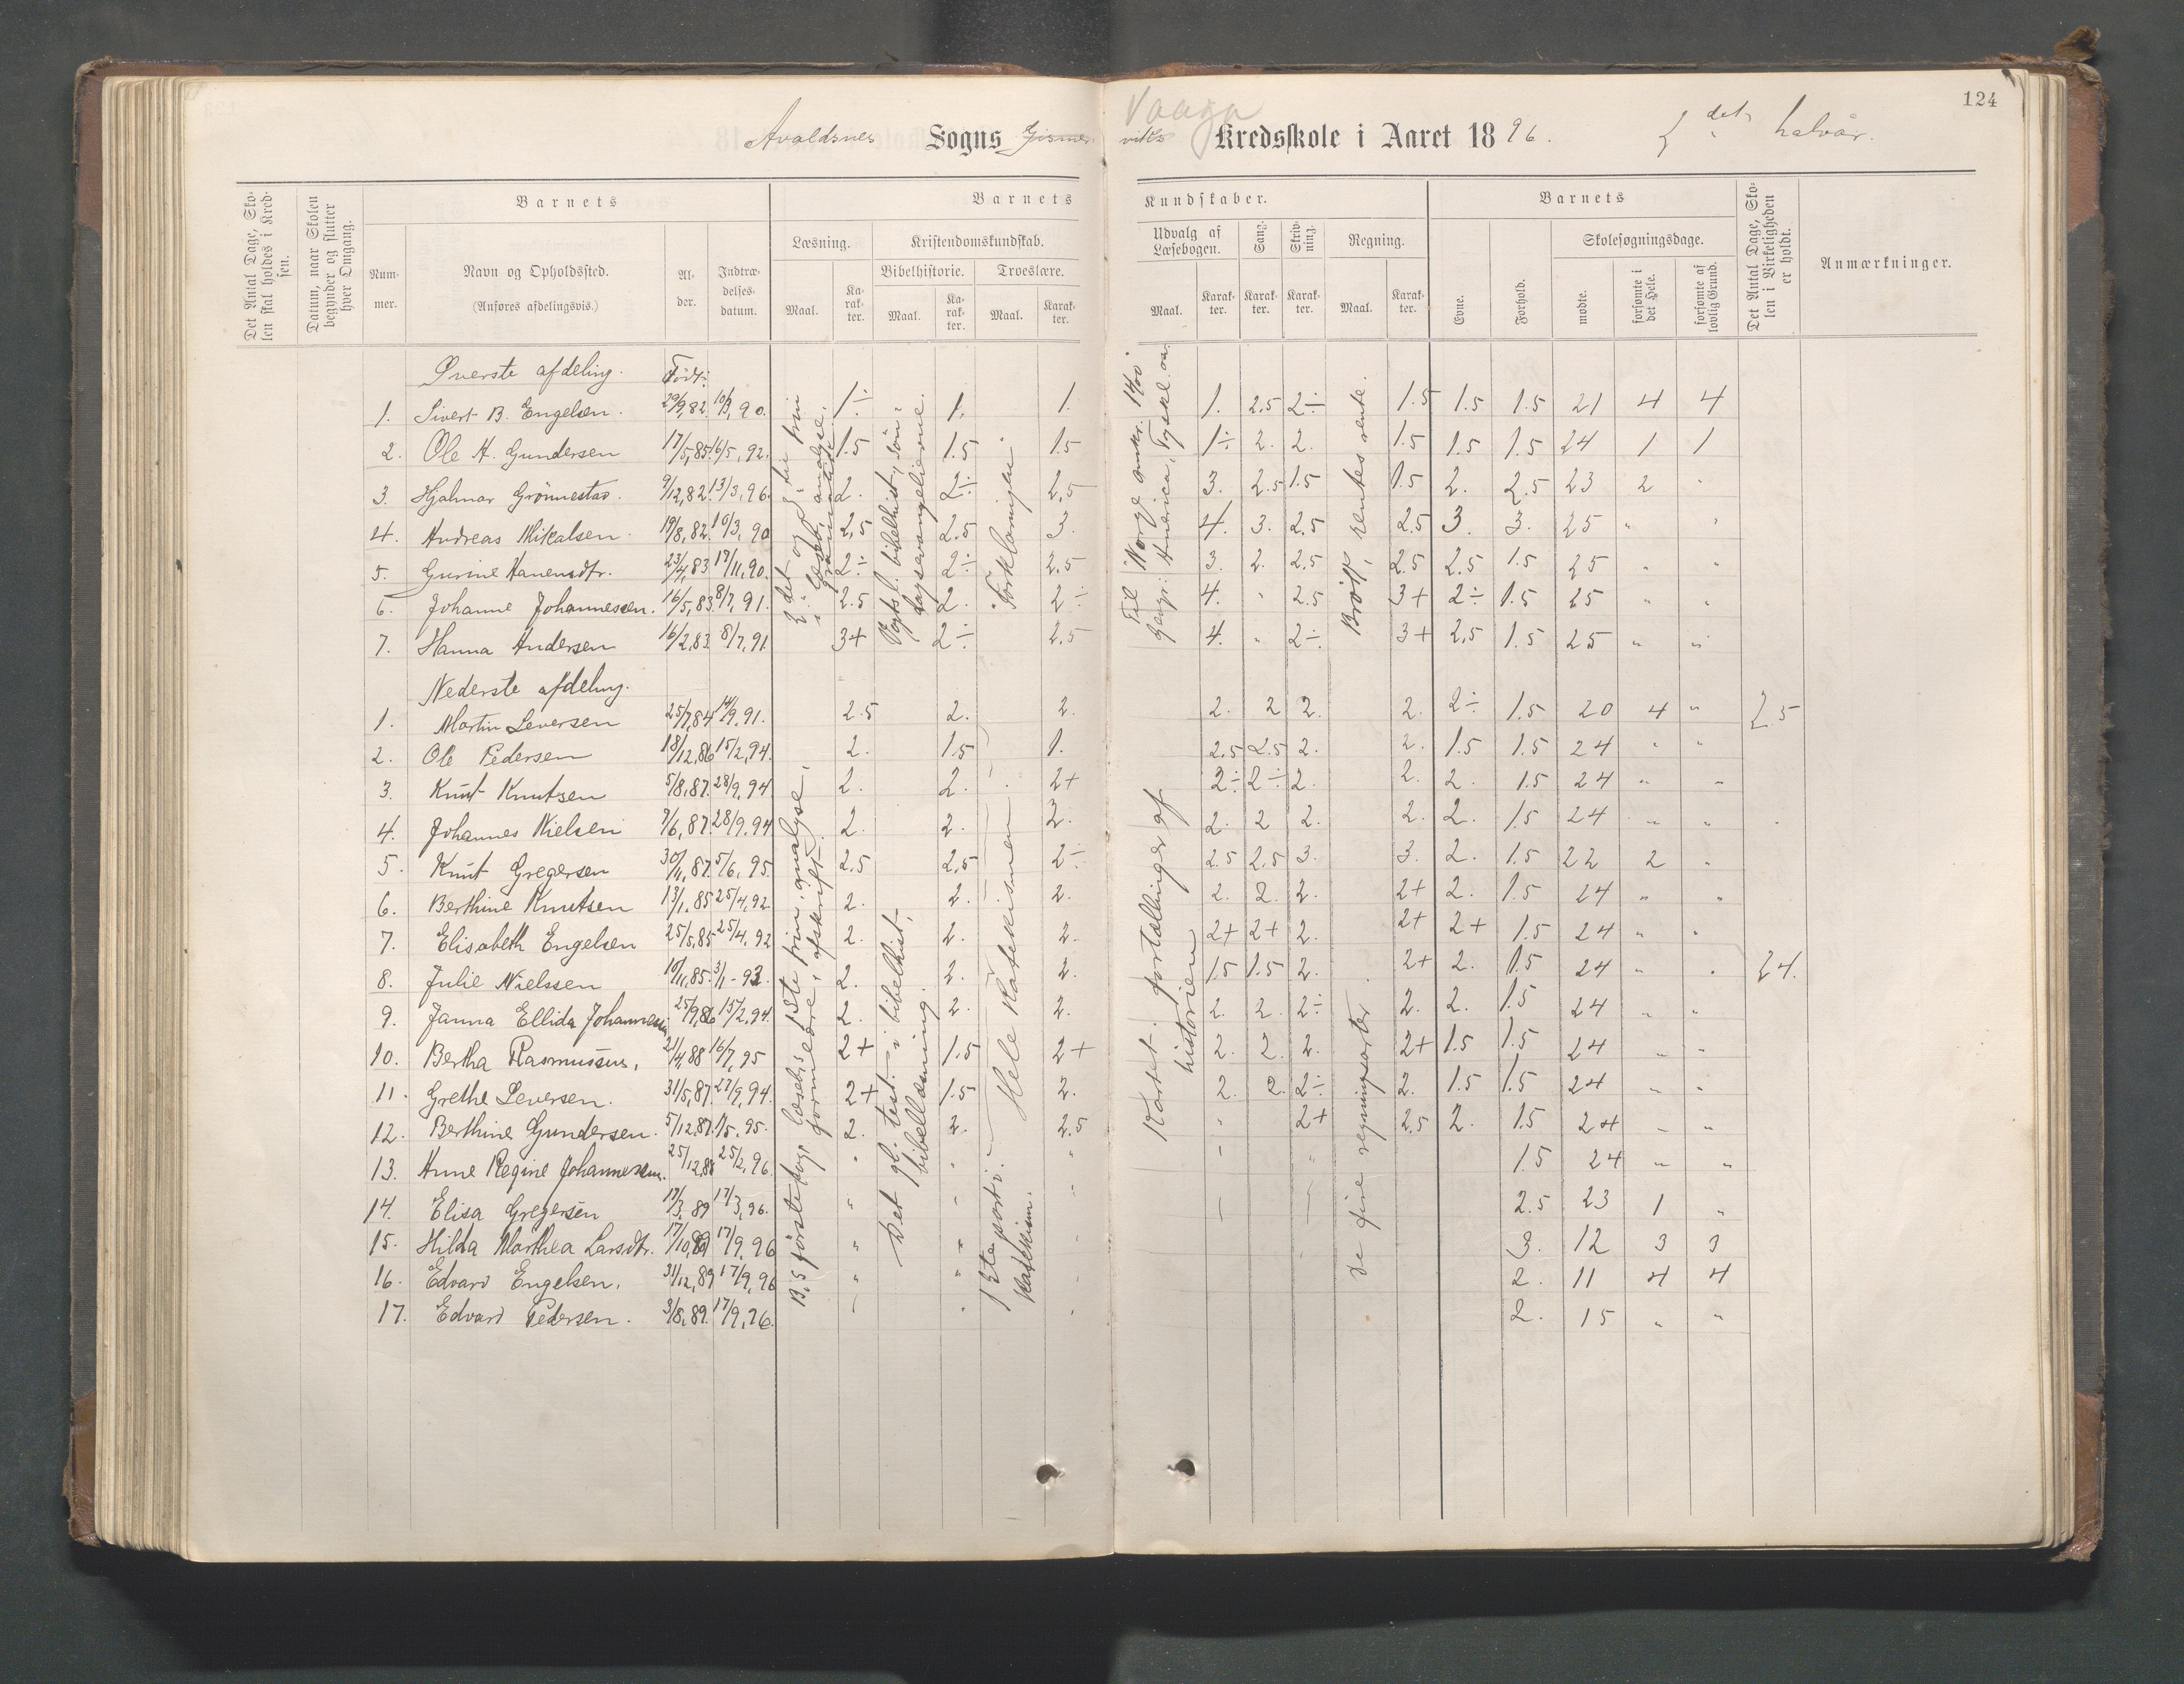 124
Avaldsnes Sogns Gismer-viks Vaaga Kredsskole i Aaret 1896. 2det halvår.
Det Antal Dage, Skolen skal holdes i Kredsen.
Datum, naar Skolen begynder og slutter hver Omgang.
Barnets
Barnets Kundskaber.
Barnets
Det Antal Dage, Skolen i Virkeligheden er holdt.
Anmærkninger.
Nummer.
Navn og Opholdssted.
(Anføres afdelingsvis.)
Alder.
Indtrædelsesdatum.
Læsning.
Kristendomskundskab.
Bibelhistorie.
Troeslære.
Udvalg af Læsebogen.
Sang.
Skrivning.
Regning.
Evne.
Forhold.
Skolesøgningsdage.
Maal. Karakter. Maal. Karakter. Maal. Karakter. Maal. Karakter. Karakter. Karakter. Maal. Karakter.
mødte.
forsømte i det Hele.
forsømte af lovlig Grund.
Øverste afdeling. Født:
1. Sivert B. Engelsen. 29/9,82. 10/3,90. 1÷ 1. 1. 1. 2.5 2÷ 1.5 1.5 1.5 21 4 4
2. Ole A. Gundersen 17/5,85. 16/5,92. 1.5 1.5 1.5 1÷ 2. 2. 1.5 1.5 1.5 24 1 1
3. Hjalmar Grönnestad. 9/12,82. 13/3,96. 2. 2÷ 2,5 3. 2.5 1.5 1.5 2. 2.5 23 2 "
4. Andreas Mikalsen. 19/8,82. 10/3,90 2,5 2.5 3. 4. 3. 2.5 2.5 3. 3. 25 " "
5. Gurine Hansensdtr. 23/4,83 17/11,90. 2÷ 2÷ 2.5 3. 2. 2.5 2.5 2.5 1.5 25 " "
6. Johanne Johannessen. 16/5,83. 8/7,91. 2.5 2. 2÷ 4. " 2.5 3+ 2÷ 1.5 25 " "
7. Hanna Andersen 16/2,83. 8/7,91. 3+ 2÷ 2.5 4. " 2÷ 3+ 2,5 1.5 25 " "
Forklaringen
Brök, rentesrente.
Nederste afdeling.
1. Martin Leversen 25/7,84 14/9,91. 2.5 2. 2. 2. 2 2. 2. 2÷ 1.5 20 4 " 25
2. Ole Pedersen 18/12,86 15/2,94. 2. 1.5 1. 2.5 2.5 2. 2. 1.5 1.5 24 " "
3. Knut Knutsen 5/8,87. 28/9,94 2. 2. 2+ 2÷ 2÷ 2. 2. 2. 1.5 24 " "
4. Johannes Nielsen 7/6,87. 28/9,94 2. 2. 2. 2. 2 2. 2. 2. 1.5 24 " "
5. Knut Gregersen 30/11,87. 5/6,95. 2.5 2.5 2÷ 2.5 2.5 3. 3. 2. 1.5 22 2 "
6. Berthine Knutsen 13/1,85 25/4,92. 2. 2. 2. 2. 2. 2. 2+ 2. 1.5 24 " "
7. Elisabeth Engelsen 25/5,85 25/4,92 2. 2. 2. 2+ 2+ 2. 2+ 2+ 1.5 24 " "
8. Julie Nielssen 10/11,85. 3/1-93. 2. 2. 2. 1.5 1.5 2. 2+ 2. 1.5 24 " " 24.
9. Janna Ellida Johannessen 25/9,86 15/2,94. 2. 2. 2. 2. 2. 2÷ 2. 2. 1.5 24 " "
10. Bertha Rasmussen. 21/4,88 16/7,95 2+ 1.5 2+ 2. 2. 2. 2+ 1.5 1.5 24 " "
11. Grethe Leversen. 31/5,87. 27/9,94. 2+ 1.5 2. 2. 2. 2÷ 2. 1.5 1.5 24 " "
12. Berthine Gundersen. 5/12,87. 1/5,95. 2. 2. 2.5 " 2+ 2.5 2. 1.5 24 " "
13. Anne Regine Johannessen. 25/12,88 25/2,96. " " " " " 1.5 24 " "
14. Elisa Gregersen 17/3,89 17/3,96. " " " 2.5 23 1 "
15. Hilda Marthea Larsdtr. 17/10,89 17/9,96 " " " 3. 12 3 3
16. Edvard Engelsen. 31/12,89 17/9,96 " " " 2. 11 4 4
17. Edvard Pedersen. 3/8,89. 17/9,96. " " " 2. 15 " "
Det gl. test. i bibelhist., bibellæsning.
Hele Katekismen
1ste part i Katekism.
Kortet. fortællinger af historien
de fire regningsarter